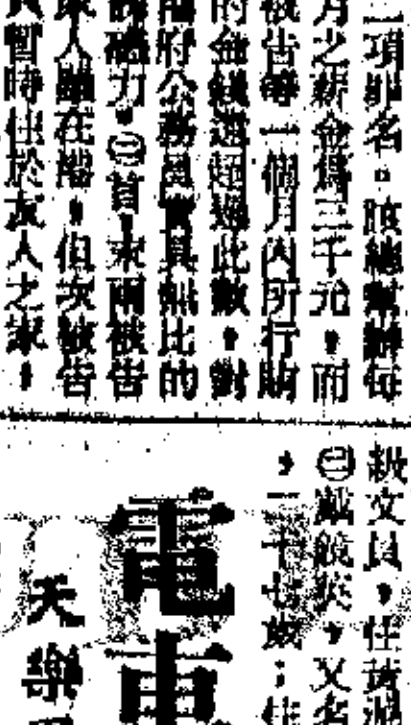 二項罪名。該總幫辦每
月之薪金爲三千元,而
被告每一個月內所行賄
的金錢遠超過此數,對
府公務員實具無比的
磁力。㊂首、末兩被告
家人雖在港,但次被告
暫時住於友人之家,
級文員,住
㊂戴鏡,又名
,二十七歲;住
電車
天樂